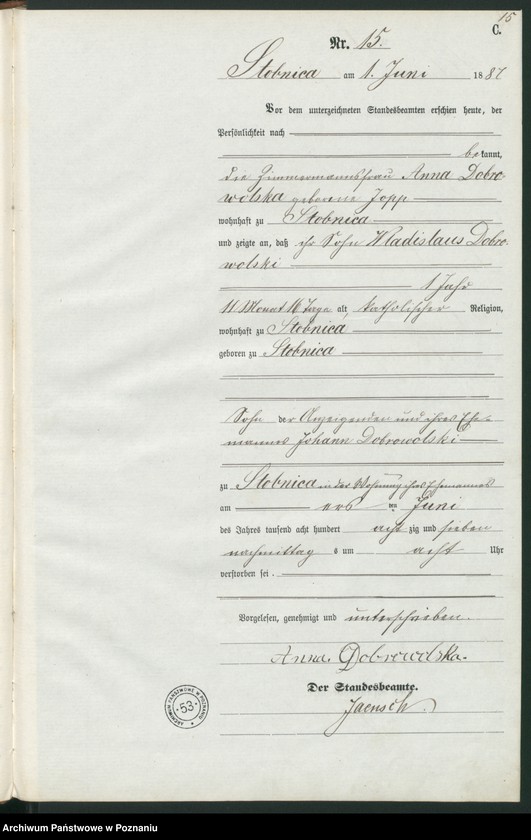 15
C.
Nr. 15.
Stobnica am 1. Juni 1887
Vor dem unterzeichneten Standesbeamten erschien heute, der
Persönlichkeit nach
bekannt,
die Zimmermannsfrau Anna Dobro-
wolska geborene Jopp
wohnhaft zu Stobnica
und zeigte an, daß ihr Sohn Wladislaus Dobro-
wolski
1 Jahr
11 Monat 16 Tage alt, katholischer Religion,
wohnhaft zu Stobnica
geboren zu Stobnica
Sohn der Anzeigenden und ihres Ehe-
mannes Johann Dobrowolski
zu Stobnica in der Wohnung ihres Ehemannes
am ers ten Juni
des Jahres tausend acht hundert acht zig und sieben
nachmittag s um acht Uhr
verstorben sei.
Vorgelesen, genehmigt und unterschrieben.
Anna Dobrowolska.
Der Standesbeamte.
Jaensch.
ARCHIWUM PAŃSTWOWE W POZNANIU
53
Archiwum Państwowe w Poznaniu